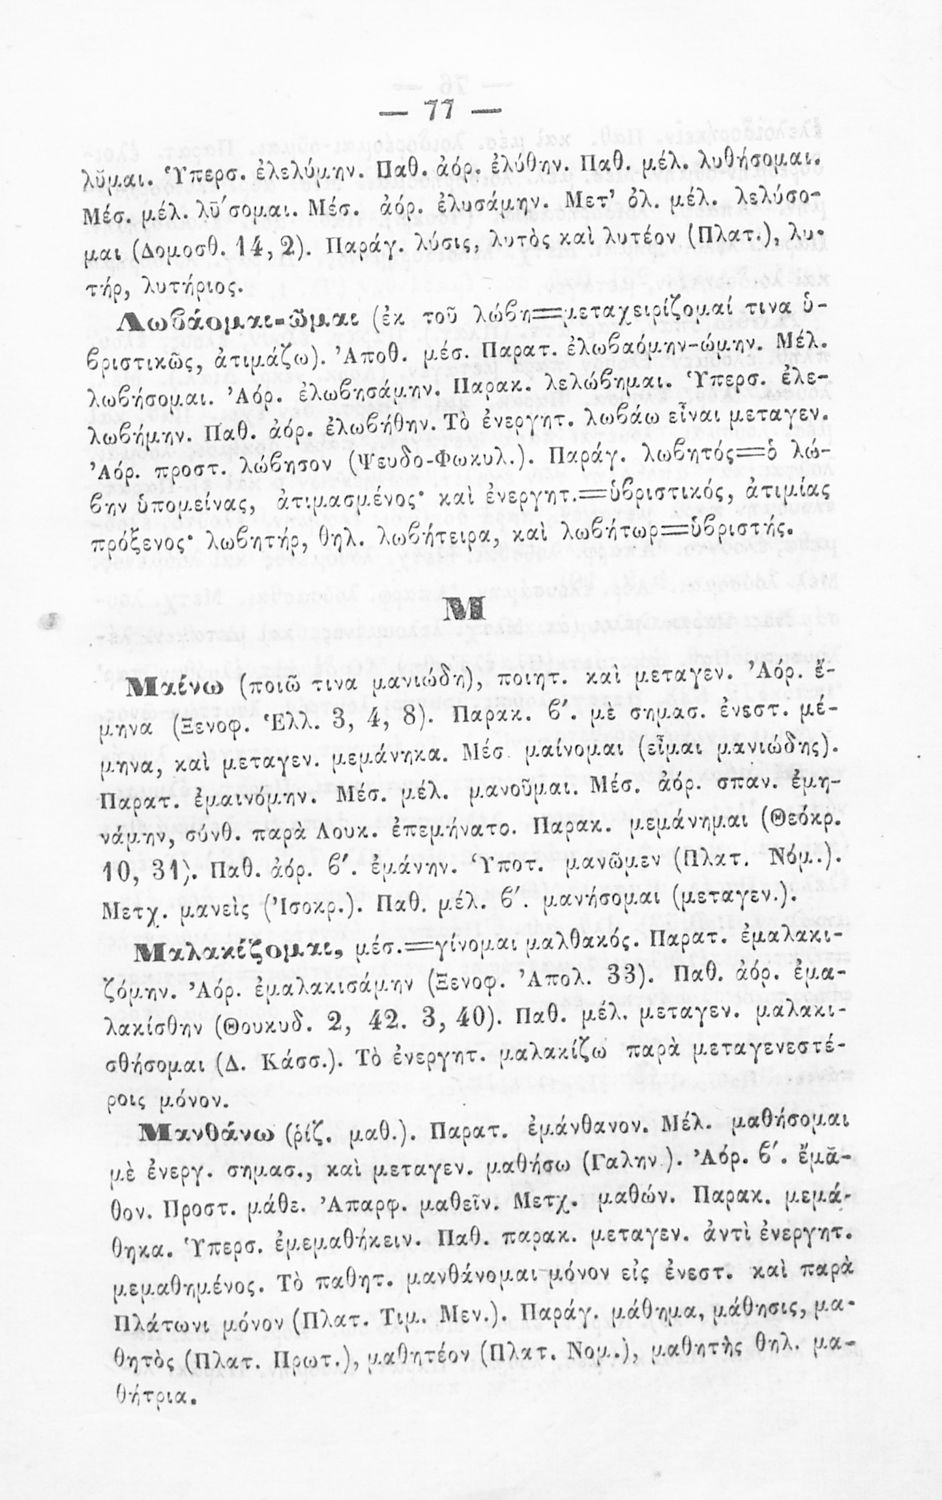 — 77 —
λῦμαι. Ὑπερσ. ἐλελύμην. Παθ. ἀόρ. ἐλύθην. Παθ. μέλ. λυθήσομαι.
Μέσ. μέλ. λῡ́σομαι. Μέσ. ἀόρ. ἐλυσάμην. Μετ’ ὀλ. μέλ. λελύσο-
μαι (Δομοσθ. 14, 2). Παράγ. λύσις, λυτὸς καὶ λυτέον (Πλατ.), λυ-
τήρ, λυτήριος.
Λωβάομαι-ῶμαι (ἐκ τοῦ λώβη=μεταχειρίζομαί τινα ὑ-
βριστικῶς, ἀτιμάζω). Ἀποθ. μέσ. Παρατ. ἐλωβαόμην-ώμην. Μέλ.
λωβήσομαι. Ἀόρ. ἐλωβησάμην. Παρακ. λελώβημαι. Ὑπερσ. ἐλε-
λωβήμην. Παθ. ἀόρ. ἐλωβήθην. Τὸ ἐνεργητ. λωβάω εἶναι μεταγεν.
Ἀόρ. προστ. λώβησον (Ψευδο-Φωκυλ.). Παράγ. λωβητός=ὁ λώ-
βην ὑπομείνας, ἀτιμασμένος· καὶ ἐνεργητ.=ὑβριστικός, ἀτιμίας
πρόξενος· λωβητήρ, θηλ. λωβήτειρα, καὶ λωβήτωρ=ὑβριστής.
Μ
Μαίνω (ποιῶ τινα μανιώδη), ποιητ. καὶ μεταγεν. Ἀόρ. ἔ-
μηνα (Ξενοφ. Ἑλλ. 3, 4, 8). Παρακ. β′. μὲ σημασ. ἐνεστ. μέ-
μηνα, καὶ μεταγεν. μεμάνηκα. Μέσ. μαίνομαι (εἶμαι μανιώδης).
Παρατ. ἐμαινόμην. Μέσ. μέλ. μανοῦμαι. Μέσ. ἀόρ. σπαν. ἐμη-
νάμην, σύνθ. παρὰ Λουκ. ἐπεμήνατο. Παρακ. μεμάνημαι (Θεόκρ.
10, 31). Παθ. ἀόρ. β′. ἐμάνην. Ὑποτ. μανῶμεν (Πλατ. Νόμ.).
Μετχ. μανεὶς (Ἰσοκρ.). Παθ. μέλ. β′. μανήσομαι (μεταγεν.).
Μαλακίζομαι, μέσ.=γίνομαι μαλθακός. Παρατ. ἐμαλακι-
ζόμην. Ἀόρ. ἐμαλακισάμην (Ξενοφ. Ἀπολ. 33). Παθ. ἀόρ. ἐμα-
λακίσθην (Θουκυδ. 2, 42. 3, 40). Παθ. μέλ. μεταγεν. μαλακι-
σθήσομαι (Δ. Κάσσ.). Τὸ ἐνεργητ. μαλακίζω παρὰ μεταγενεστέ-
ροις μόνον.
Μανθάνω (ῥίζ. μαθ.). Παρατ. ἐμάνθανον. Μέλ. μαθήσομαι
μὲ ἐνεργ. σημασ., καὶ μεταγεν. μαθήσω (Γαλην.). Ἀόρ. β′. ἔμᾰ-
θον. Προστ. μάθε. Ἀπαρφ. μαθεῖν. Μετχ. μαθών. Παρακ. μεμά-
θηκα. Ὑπερσ. ἐμεμαθήκειν. Παθ. παρακ. μεταγεν. ἀντὶ ἐνεργητ.
μεμαθημένος. Τὸ παθητ. μανθάνομαι μόνον εἰς ἐνεστ. καὶ παρὰ
Πλάτωνι μόνον (Πλατ. Τιμ. Μεν.). Παράγ. μάθημα, μάθησις, μα-
θητὸς (Πλατ. Πρωτ.), μαθητέον (Πλατ. Νομ.), μαθητὴς θηλ. μα-
θήτρια.